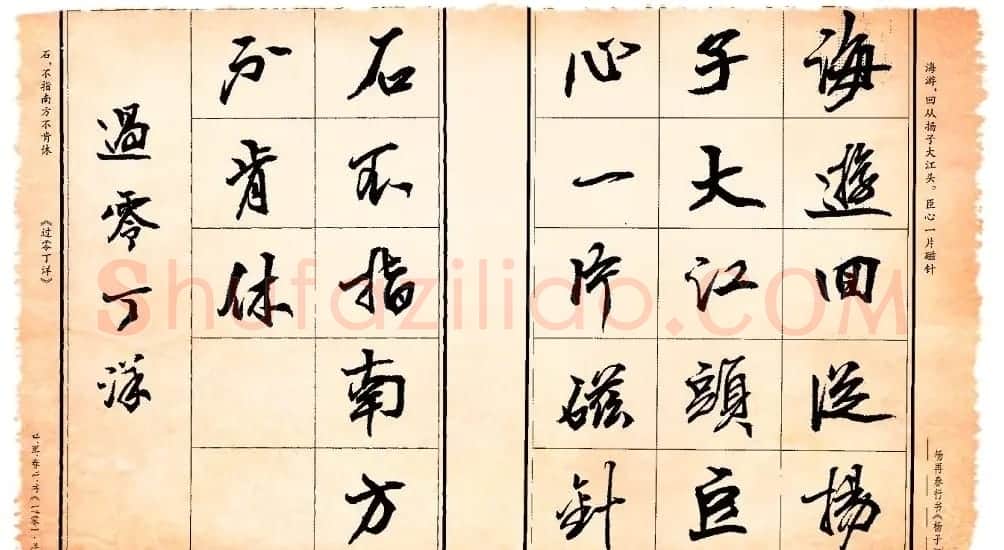 海游，回从扬子大江头。臣心一片磁针
杨再春行书《杨子
海遊回從揚
子大江頭臣
心一片磁針
石不指南方
不肯休
過零丁洋
石，不指南方不肯休 《过零丁洋》
Shufaziliao.COM